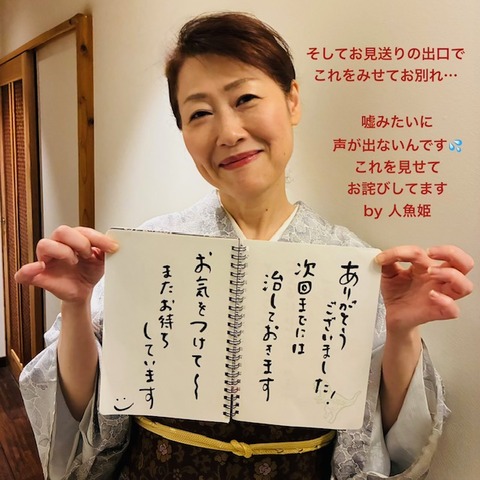 そしてお見送りの出口で
これをみせてお別れ…
嘘みたいに
声が出ないんです💦
これを見せて
お詫びしてます
by 人魚姫
ありがとう
ございました!
次回までには
治しておきます
お気をつけて〜
またお待ち
しています